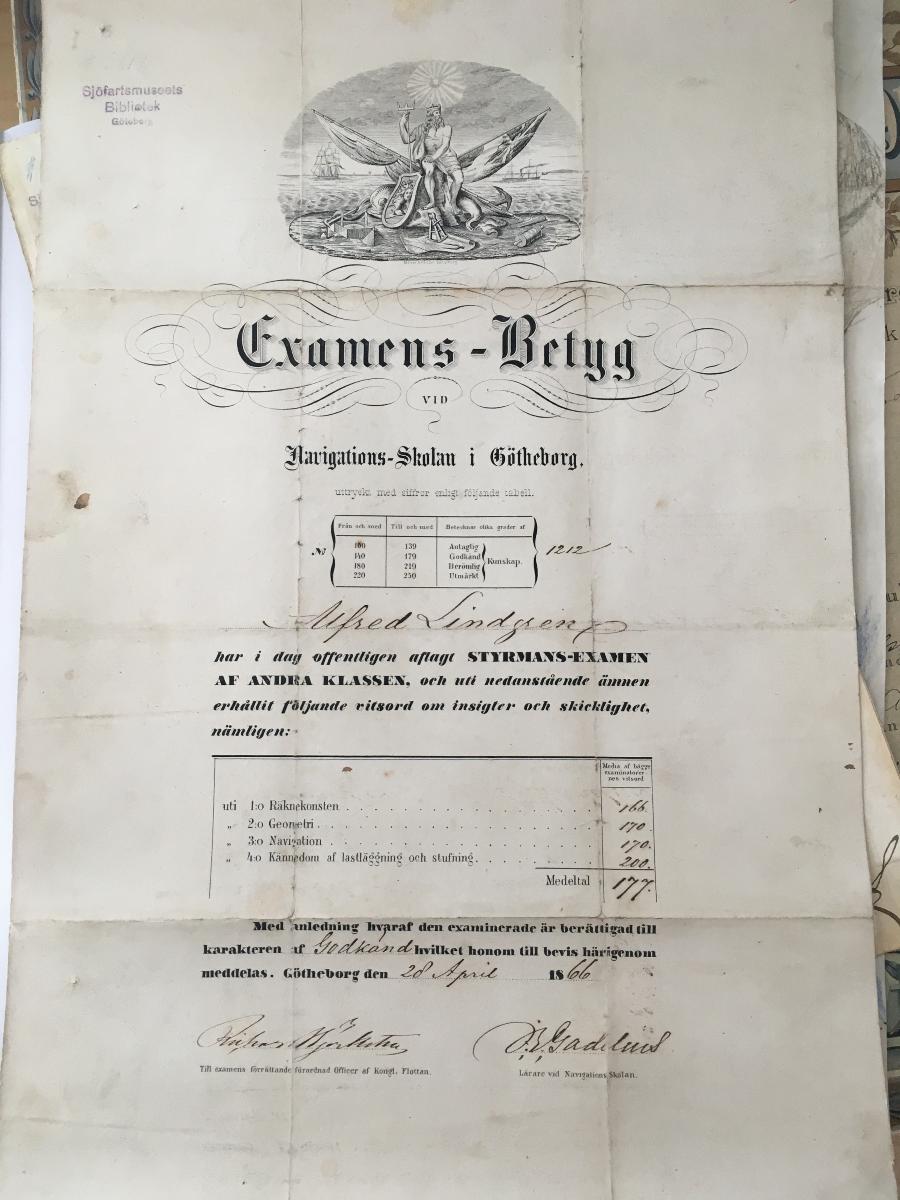 Sjöfartsmuseets
Bibliotek
Göteborg
Examens-Betyg
VID
Navigations-Skolan i Götheborg,
uttryckt med siffror enligt följande tabell.
Från och med Till och med Betecknar olika grader af
100 139 Antaglig
140 179 Godkänd
180 219 Berömlig
220 250 Utmärkt
Kunskap.
№ 1212
Alfred Lindgren
har i dag offentligen aflagt STYRMANS-EXAMEN
AF ANDRA KLASSEN, och uti nedanstående ämnen
erhållit följande vitsord om insigter och skicklighet,
nämligen:
Media af bägge
examinatorer-
nes vitsord
uti 1:o Räknekonsten 166.
„ 2:o Geometri 170.
„ 3:o Navigation 170.
„ 4:o Kännedom af lastläggning och stufning 200.
Medeltal 177.
Med anledning hvaraf den examinerade är berättigad till
karakteren af Godkänd hvilket honom till bevis härigenom
meddelas. Götheborg den 28 April 1866
Gadelius
Till examens förrättande förordnad Officer af Kongl. Flottan.
Lärare vid Navigations Skolan.